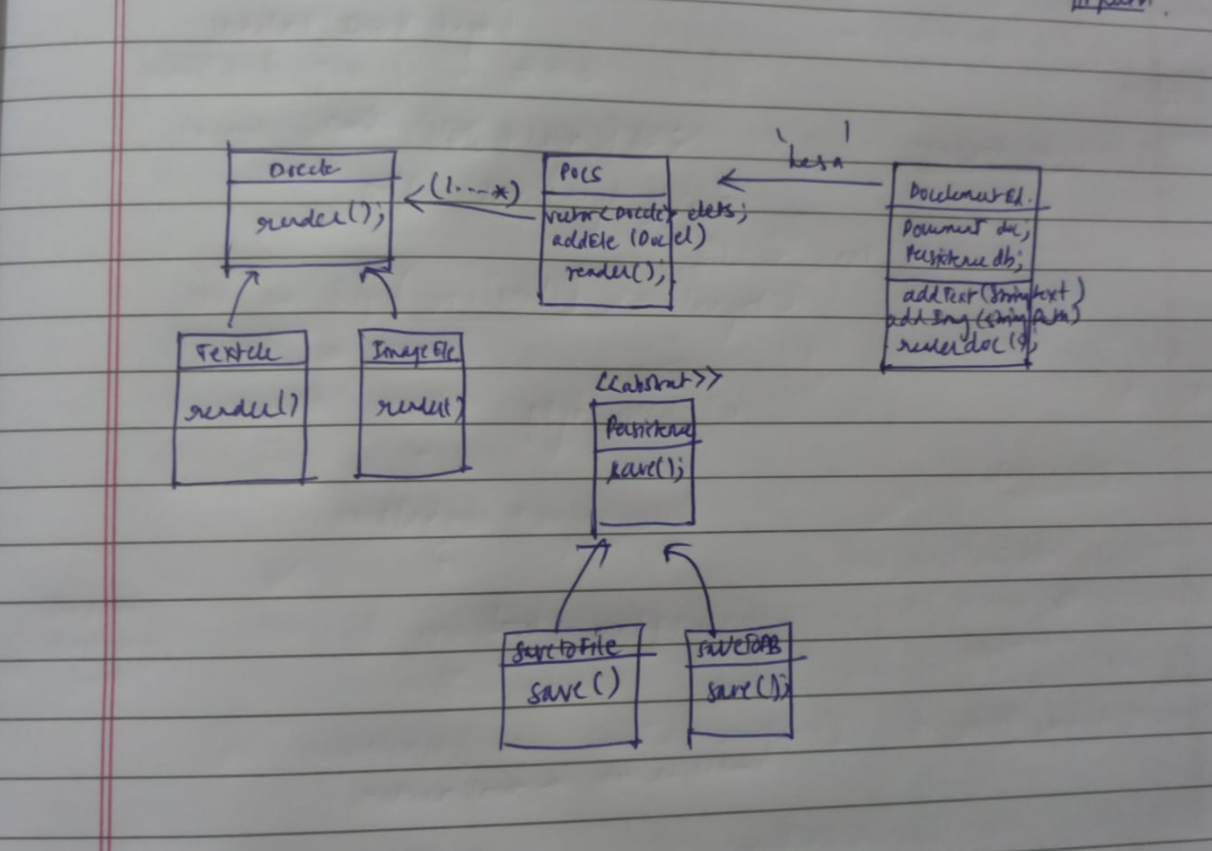 Docele
render();
(1....*)
Docs
vector<Docele> elets;
addEle (Doc el)
render();
' has a '
DocelementEd.
Document doc;
Persistence db;
addText(String text)
addImg(string path)
render doc();
TextEle
render()
Image Ele
render()
<<abstract>>
Persistence
save();
SavetoFile
save()
saveToDB
save();